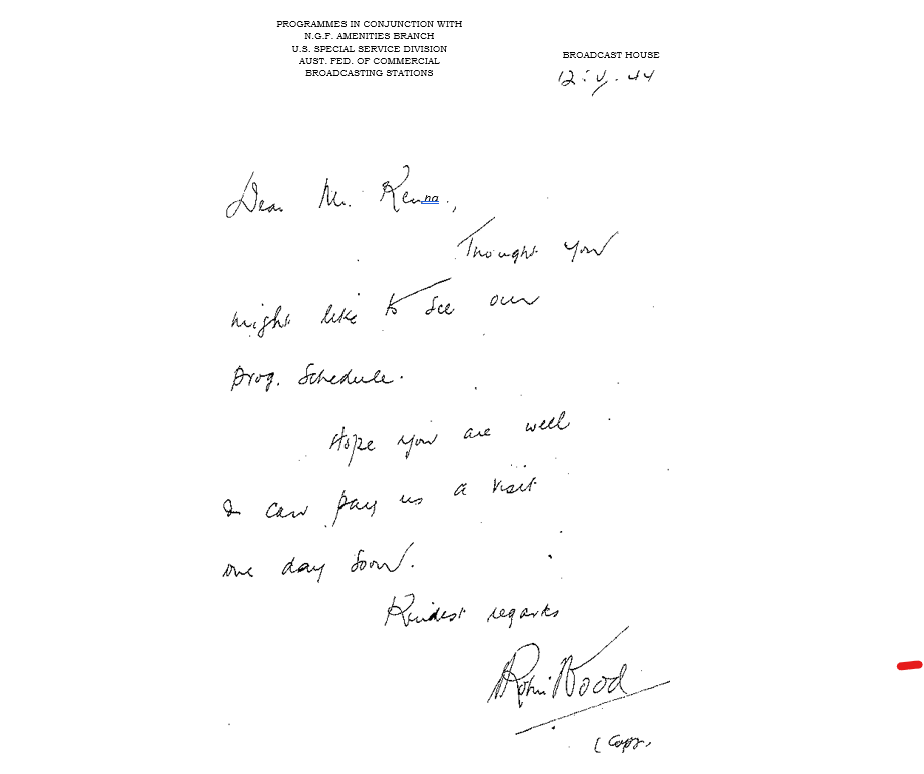 PROGRAMMES IN CONJUNCTION WITH
N.G.F. AMENITIES BRANCH
U.S. SPECIAL SERVICE DIVISION
AUST. FED. OF COMMERCIAL
BROADCASTING STATIONS
BROADCAST HOUSE
12.V.44
Dear Mr. Kenna,
Thought you
might like to see our
prog. Schedule.
Hope you are well
& can pay us a visit
one day soon.
Kindest regards
Robin Wood
(Capt.